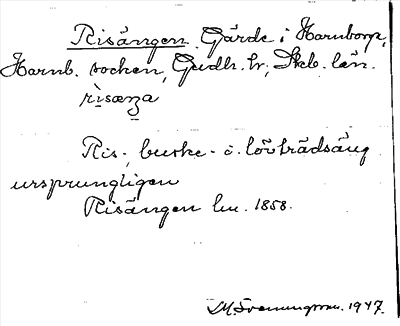 Risängen Gärde i Harnborp,
Harnb. socken, Gudh. hr, Skeb. län.
risæŋa
Ris-, buske- o. lövträdsäng
ursprungligen
Risängen lm. 1858.
1947.